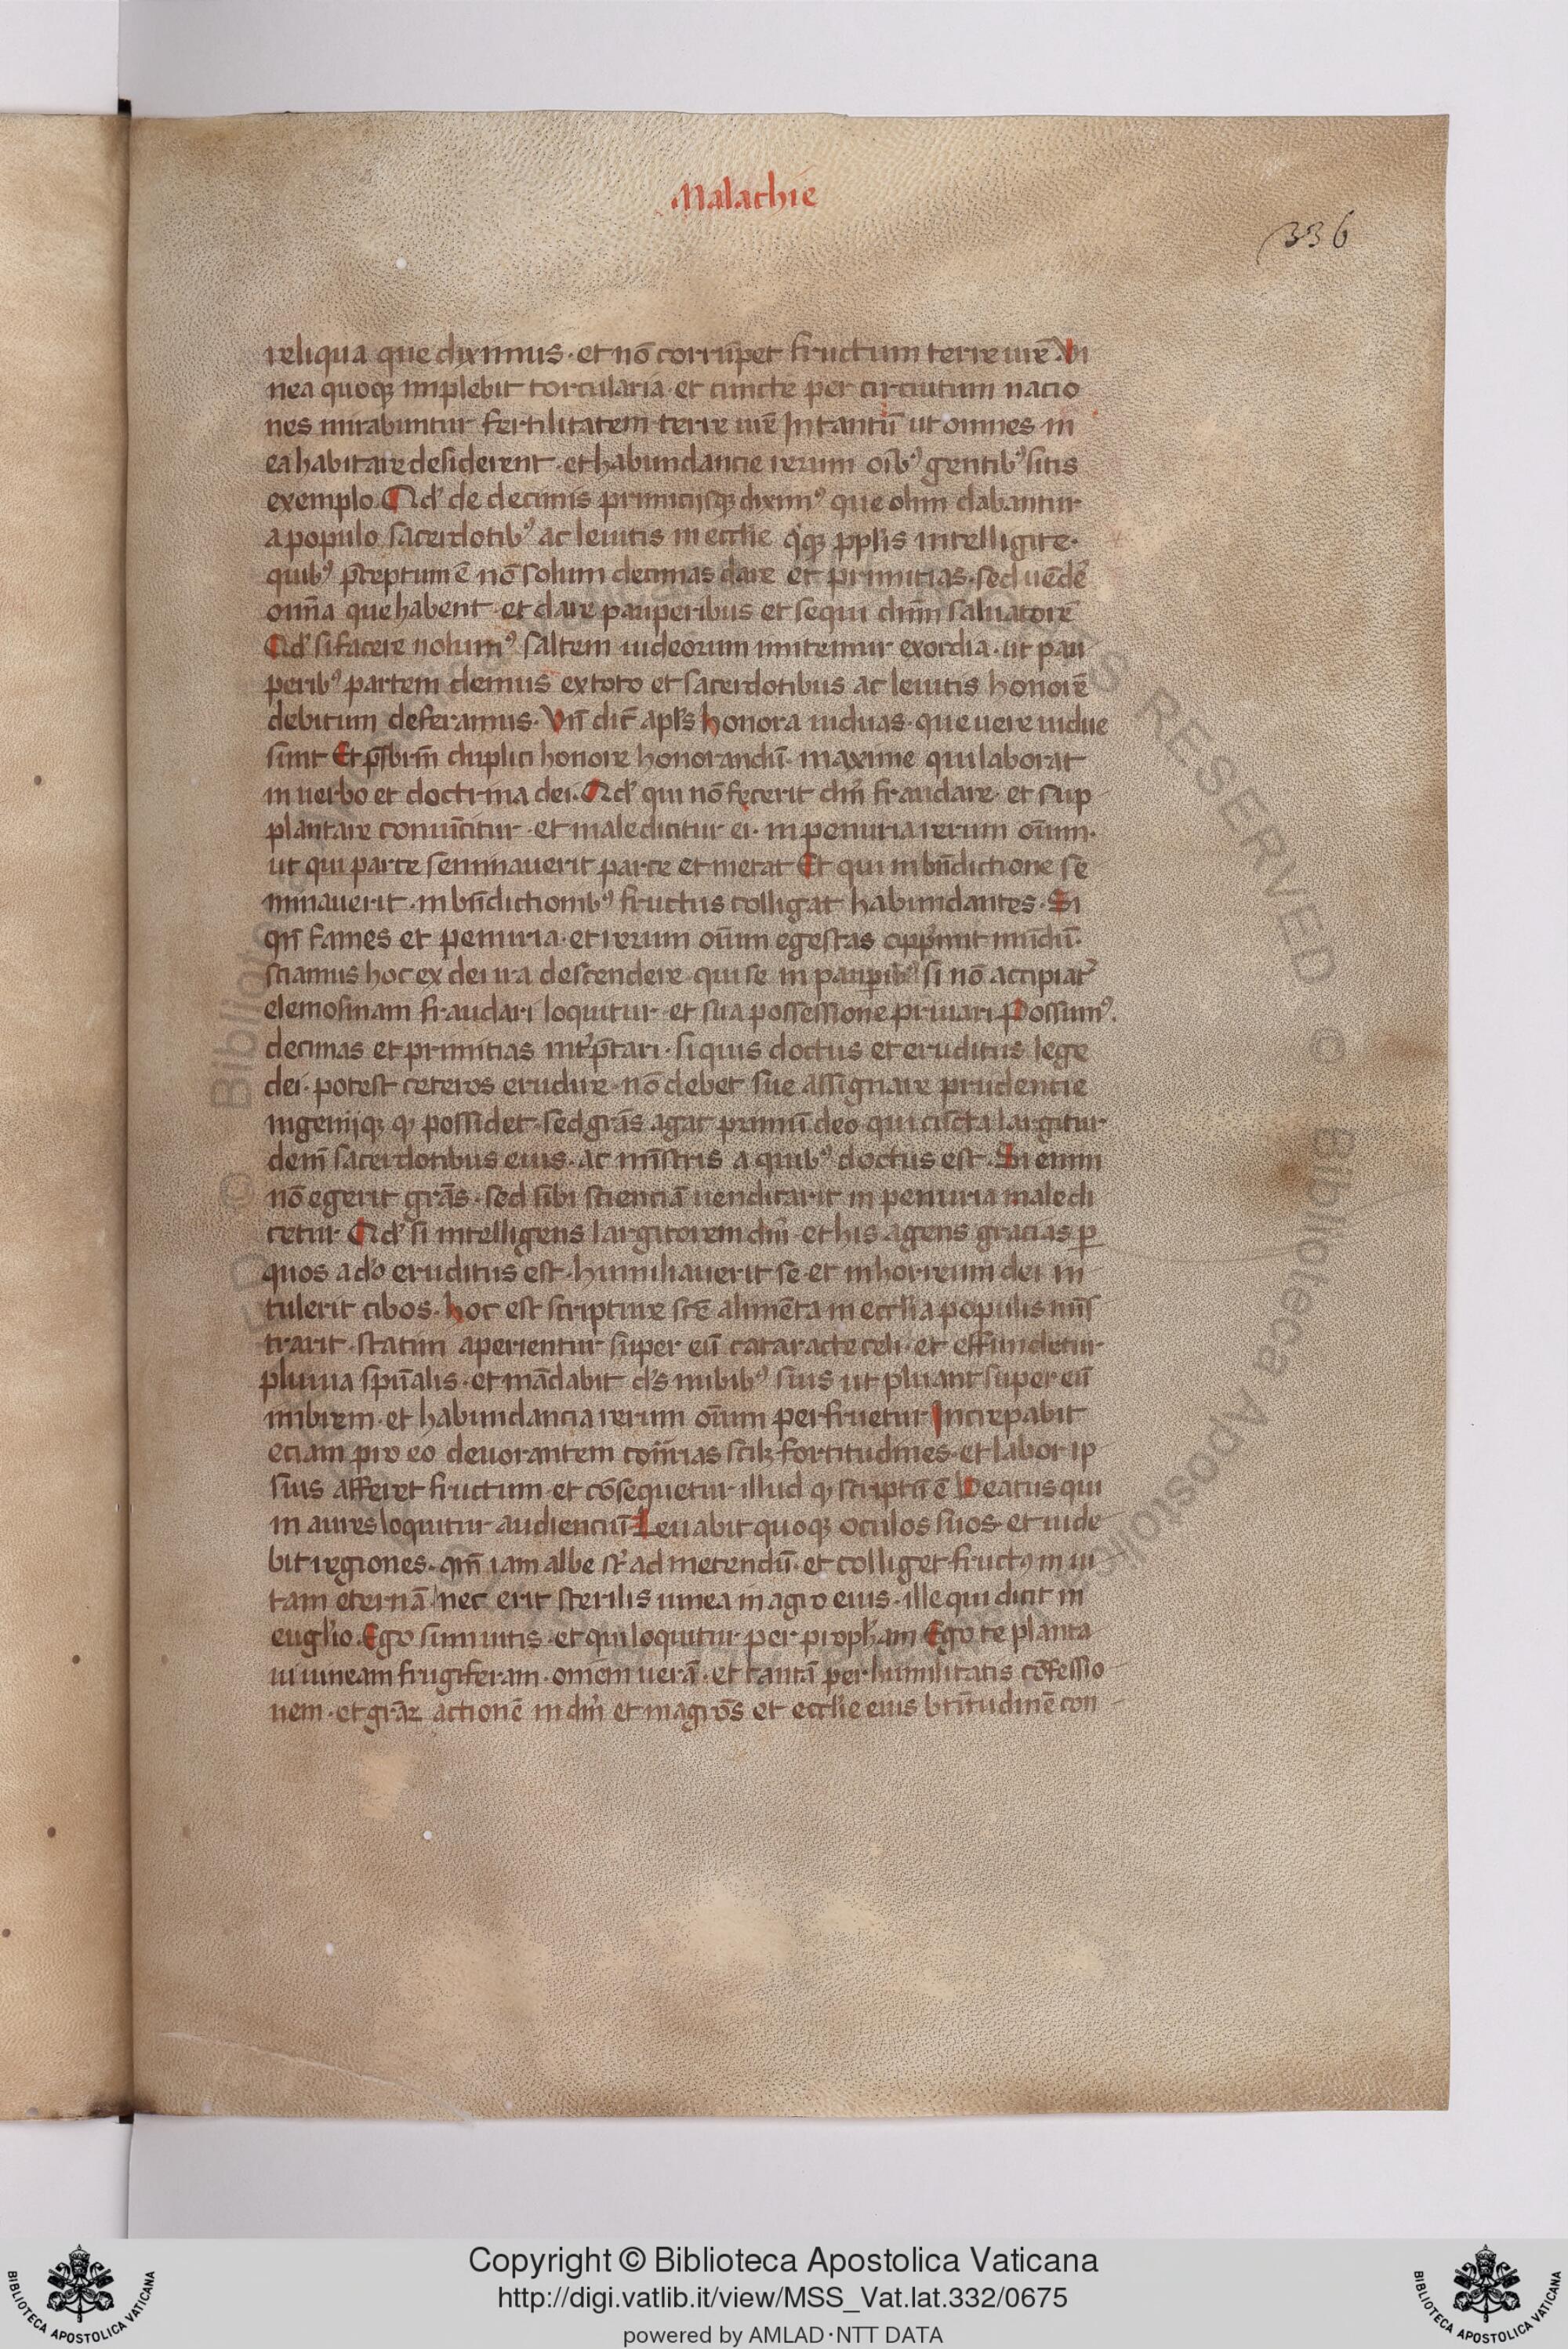 Malachie
336
reliqua que diximus · et nō corrūpet fructum terre urē Vi
nea quoq; implebit torcularia · et cuncte per circuitum nacio
nes mirabuntur fertilitatem terre urē In tantū ut omnes in
ea habitare desiderent · et habundancie rerum oībꝰ gentibꝰ sitis
exemplo. Qd' de decimis primicijsq; diximꝰ que olim dabantur
a populo sacerdotibꝰ ac leuitis in ecclie qq; pplīs intelligite ·
quibꝰ p̄ceptum ē nō solum decimas dare et primitias · sed uēdē
omīa que habent · et dare pauperibus et sequi dnm saluatorē
Qd' si facere nolumꝰ saltem iudeorum imitemur exordia · ut pau
peribꝰ partem demus ex toto et sacerdotibus ac leuitis honorē
debitum deferamus · Vn̄ dic̄ apl's honora uiduas · que uere uidue
sunt Et p̄sbrm̄ duplici honore honorandū · maxime qui laborat
in uerbo et doctrina dei · Qd' qui nō fecerit dm̄ fraudare · et sup
plantare conuīcitur · et maledicitur ei · in penuria rerum oīum ·
ut qui parce seminauerit parce et metat Et qui in bn̄dictione se
minauerit · in bn̄dictionibꝰ fructus colligat habundantes · Si
qn̄ fames et penuria · et rerum oīum egestas opp̄mit mūdū ·
sciamus hoc ex dei ira descendere · qui se in paupibꝰ si nō accipiāt
elemosinam fraudari loquitur · et sua possessione priuari Possumꝰ ·
decimas et primitias int̄p̄tari · si quis doctus et eruditus lege
dei · potest ceteros erudire · nō debet sue assignare prudentie
ingenijq; qꝫ possidet · sed grās agat primū deo qui cūcta largitur
dein̄ sacerdotibus eius · ac mīstris a quibꝰ doctus est · Si enim
nō egerit grās · sed sibi scienciā uendicarit in penuria maledi
cetur Qd' si intelligens largitorem dm̄ · et his agens gracias p
quos a dō eruditus est · humiliauerit se · et in horreum dei in
tulerit cibos · hoc est scripture scē alimēta in ecclīa populis mīs
trarit · statim aperientur super eū cataracte celi · et effundetur
pluuia spūalis · et mādabit ds nubibꝰ suis ut pluant super eū
imbrem · et habundancia rerum oīum perfruetur Increpabit
eciam pro eo deuorantem cōt̄rias scilꝫ fortitudines · et labor ip
sius afferet fructum · et cōsequetur illud qꝫ scriptū ē Beatus qui
in aures loquitur audiencium Leuabit quoq; oculos suos · et uide
bit regiones · qm̄ iam albe st̄ ad metendū · et colliget fructꝰ in ui
tam eternā nec erit sterilis uinea in agro eius · ille qui dicit in
euglīo · Ego sum uitis · et qui loquitur per proph̄am Ego te planta
ui uineam frugiferam · omēm uerā · et tantā per humilitatis cōfessio
nem · et grāꝝ actionē in dm̄ et magrōs et ecclie eius btītudinē con
Copyright © Biblioteca Apostolica Vaticana
http://digi.vatlib.it/view/MSS_Vat.lat.332/0675
powered by AMLAD·NTT DATA
BIBLIOTECA APOSTOLICA VATICANA
BIBLIOTECA APOSTOLICA VATICANA